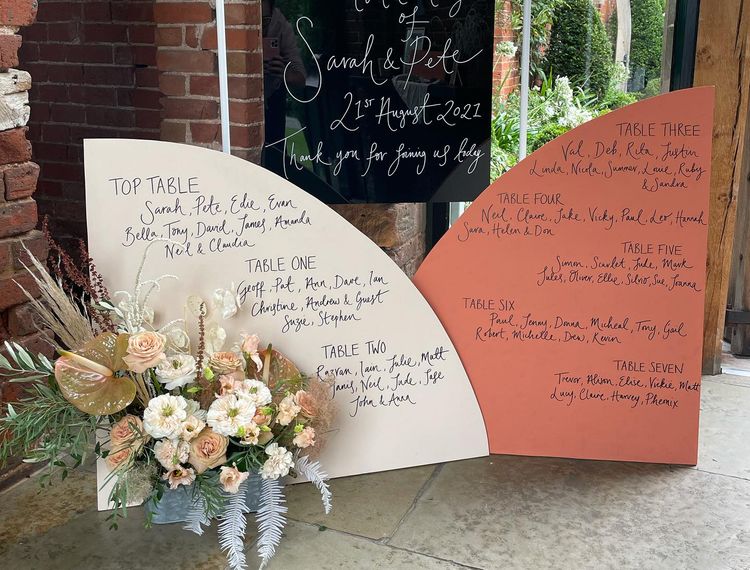 of
Sarah & Pete
21st August 2021
Thank you for joinig us today
TOP TABLE
Sarah, Pete, Edie, Evan
Bella, Tony, David, James, Amanda
Neil & Claudia
TABLE ONE
Geoff, Pat, Ann, Dave, Ian
Christine, Andrew & Guest
Suzie, Stephen
TABLE TWO
Razvan, Iain, Julie, Matt
Janis, Neil, Jude, Jase
John & Ann
TABLE THREE
Val, Deb, Rita, Justin
Linda, Nicola, Summer, Ruby
& Sandra
TABLE FOUR
Neil, Claire, Jake, Vicky, Paul, Leo, Hannah
Sara, Helen & Don
TABLE FIVE
Simon, Scarlet, Jude, Mark
Jules, Oliver, Ellie, Silvio, Sue, Joanna
TABLE SIX
Paul, Jenny, Donna, Micheal, Tony, Gail
Robert, Michelle, Dew, Kevin
TABLE SEVEN
Trevor, Alison, Elise, Vickie, Matt
Lucy, Claire, Harvey, Pheonix